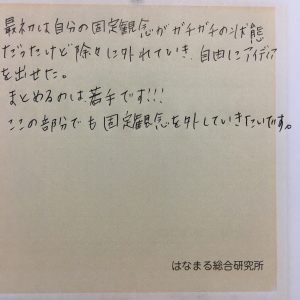 最初は自分の固定観念がガチガチの状態
だったけど徐々に外れていき、自由にアイディア
を出せた。
まとめるのは苦手です!!!
ここの部分でも固定観念を外していきたいです。
はなまる総合研究所